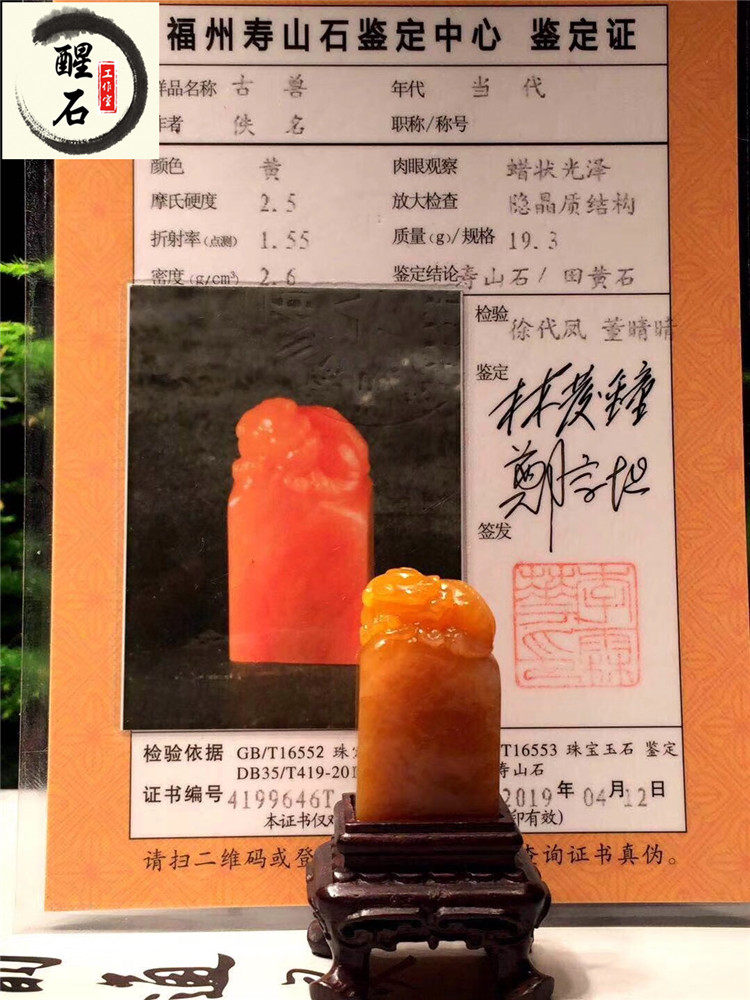 醒石
工作室
福州寿山石鉴定中心 鉴定证
样品名称 古兽 年代 当代
作者 佚名 职称/称号
颜色 黄 肉眼观察 蜡状光泽
摩氏硬度 2.5 放大检查 隐晶质结构
折射率(点测) 1.55 质量(g)/规格 19.3
密度(g/cm³) 2.6 鉴定结论 寿山石/田黄石
检验 徐代凤 董晴晴
鉴定
签发
检验依据 GB/T16552 珠 T16553 珠宝玉石 鉴定
DB35/T419-201 寿山石
证书编号 4199646T 2019年04月12日
本证书仅 印有效)
请扫二维码或登 查询证书真伪。